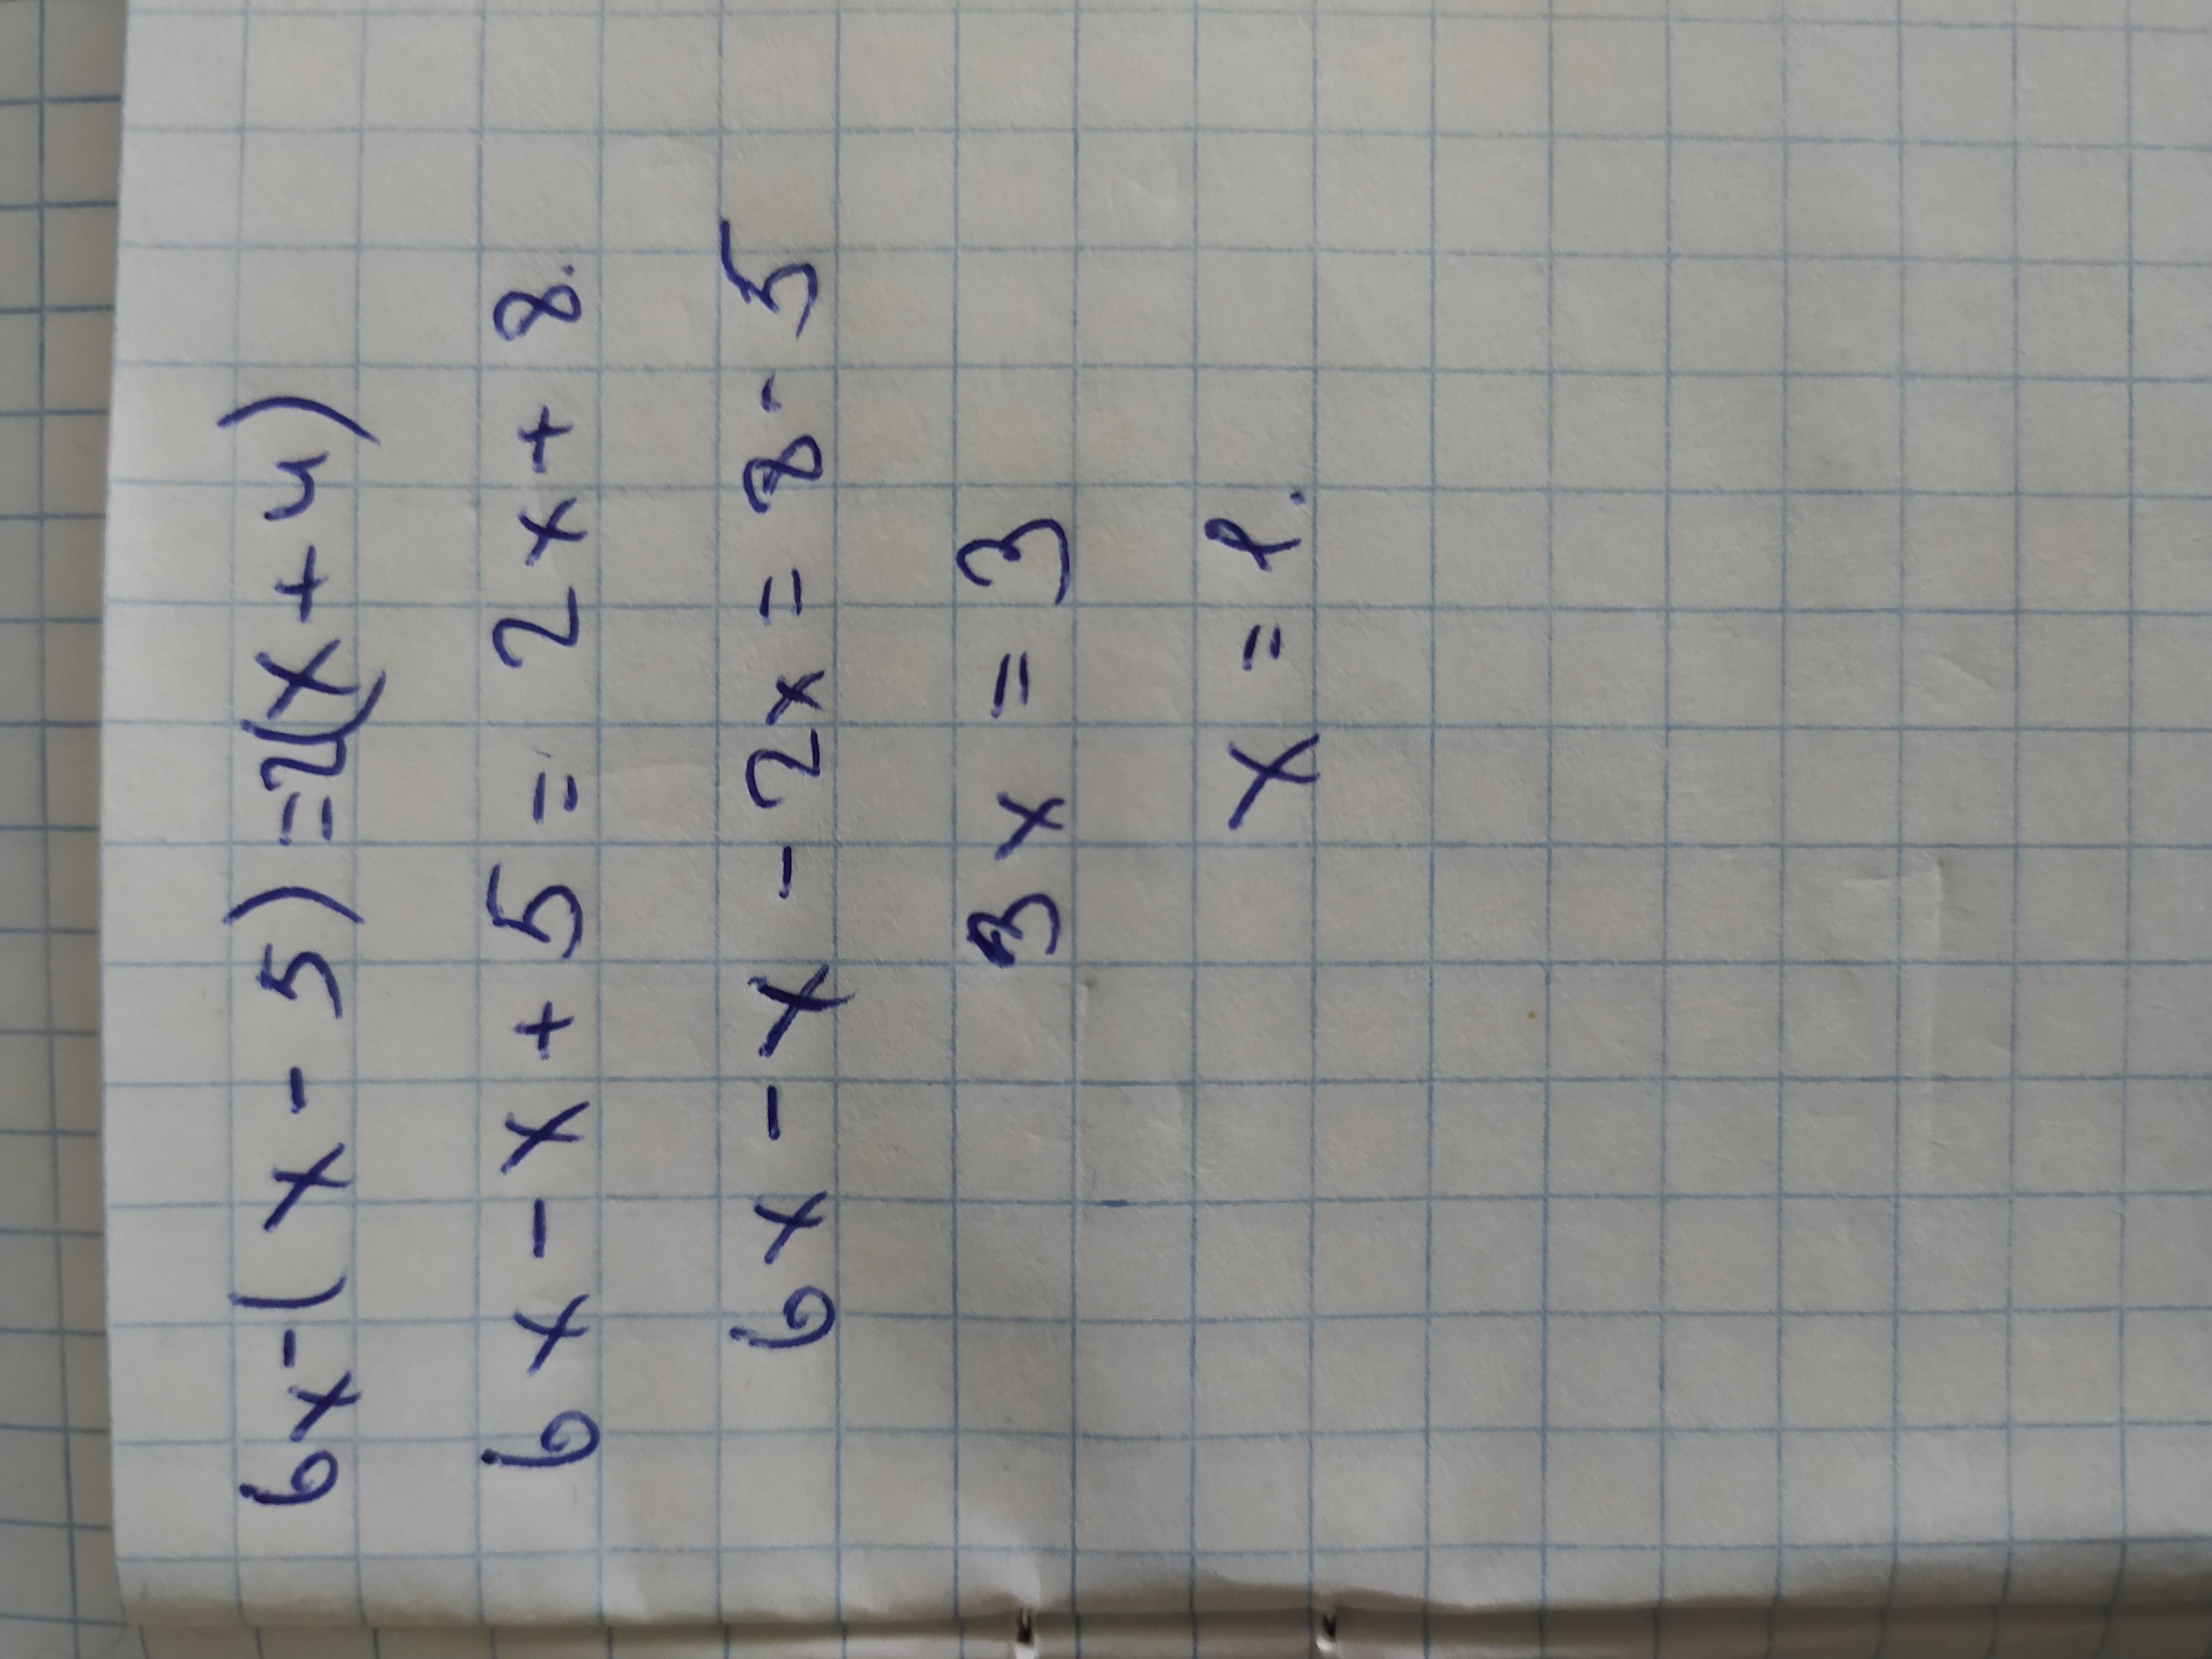 6x-(x-5)=2(x+4)
6x-x+5=2x+8.
6x-x-2x=8-5
3x=3
x=1.